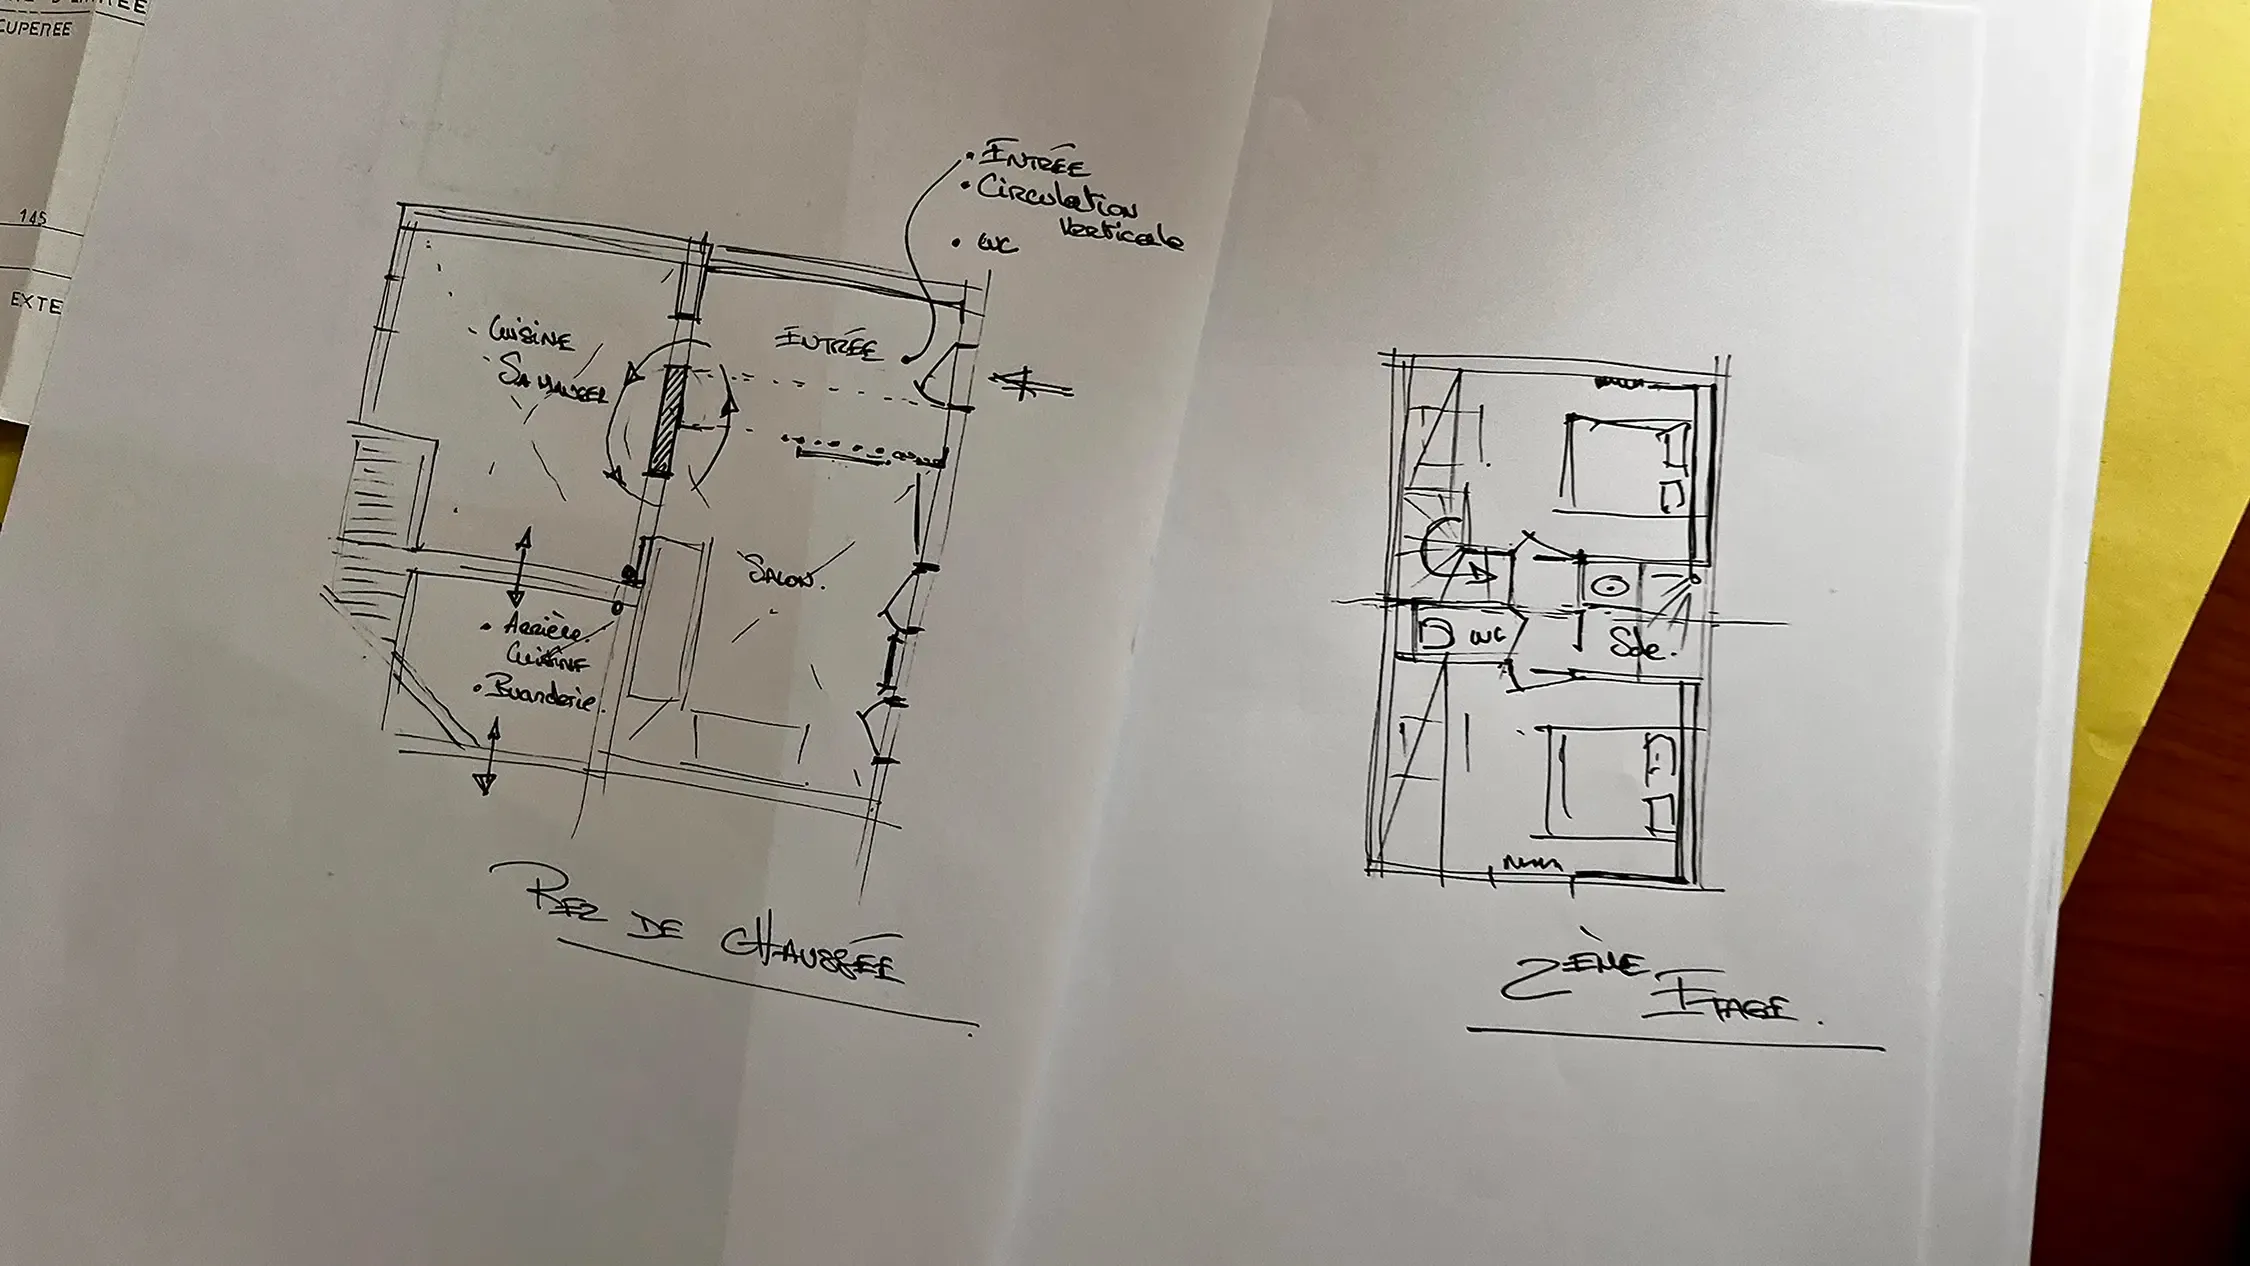 CUPEREE
145
EXTE
• ENTRÉE
• Circulation
verticale
• WC
- Cuisine
- SAMANGER
ENTRÉE
SALON.
• Arrière.
Cuisine
• Buanderie.
REZ DE CHAUSSÉE
WC
Sde.
2ÈME ETAGE.